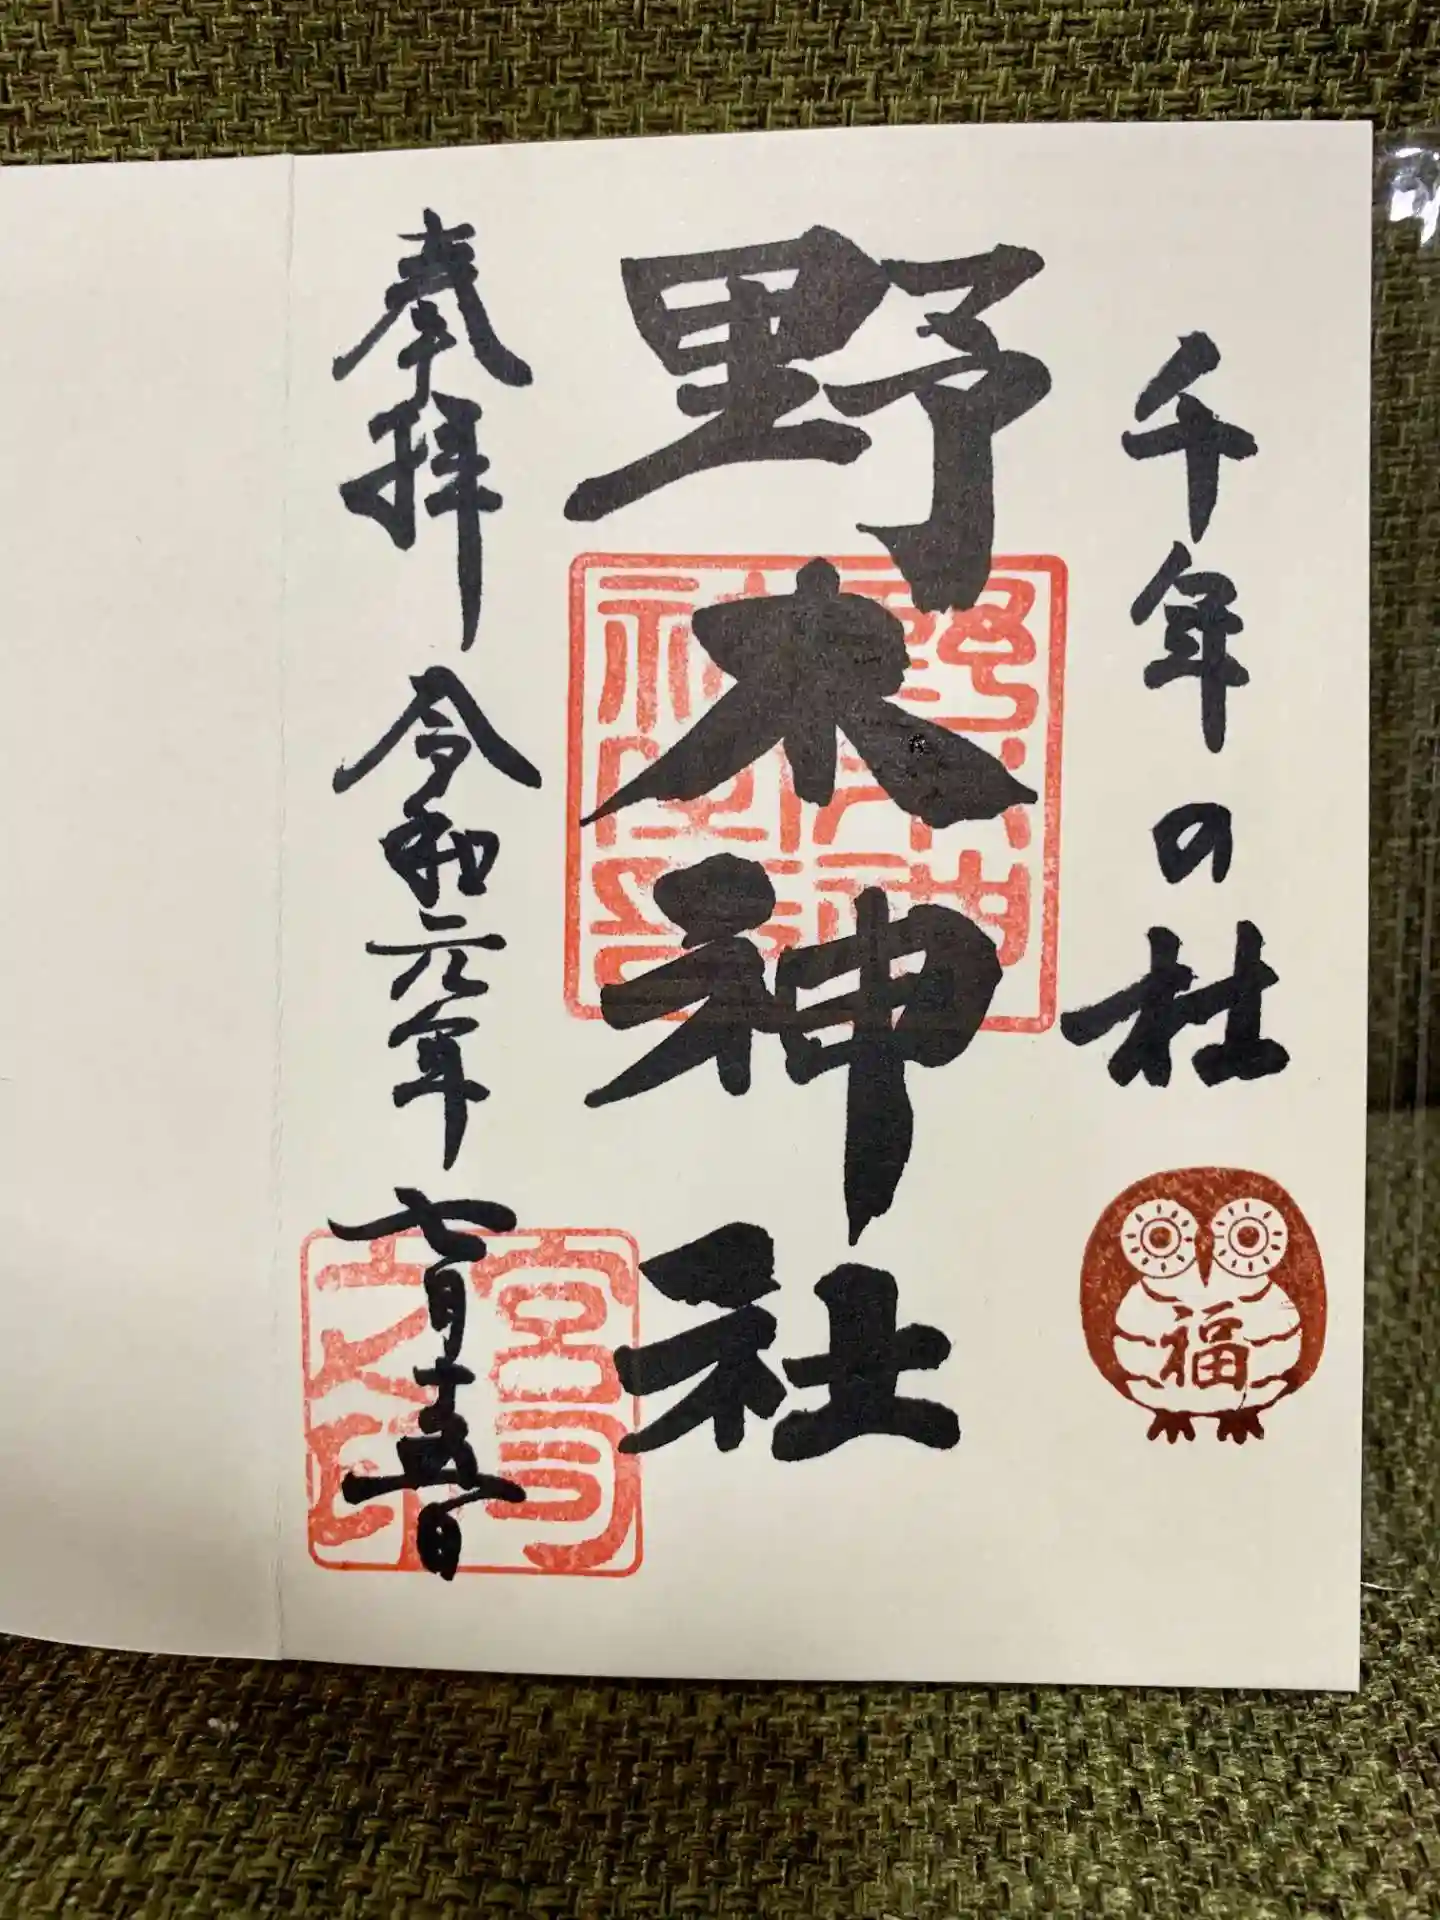 千年の杜
福
野木神社
奉拝
令和元年七月十五日
宮司之印